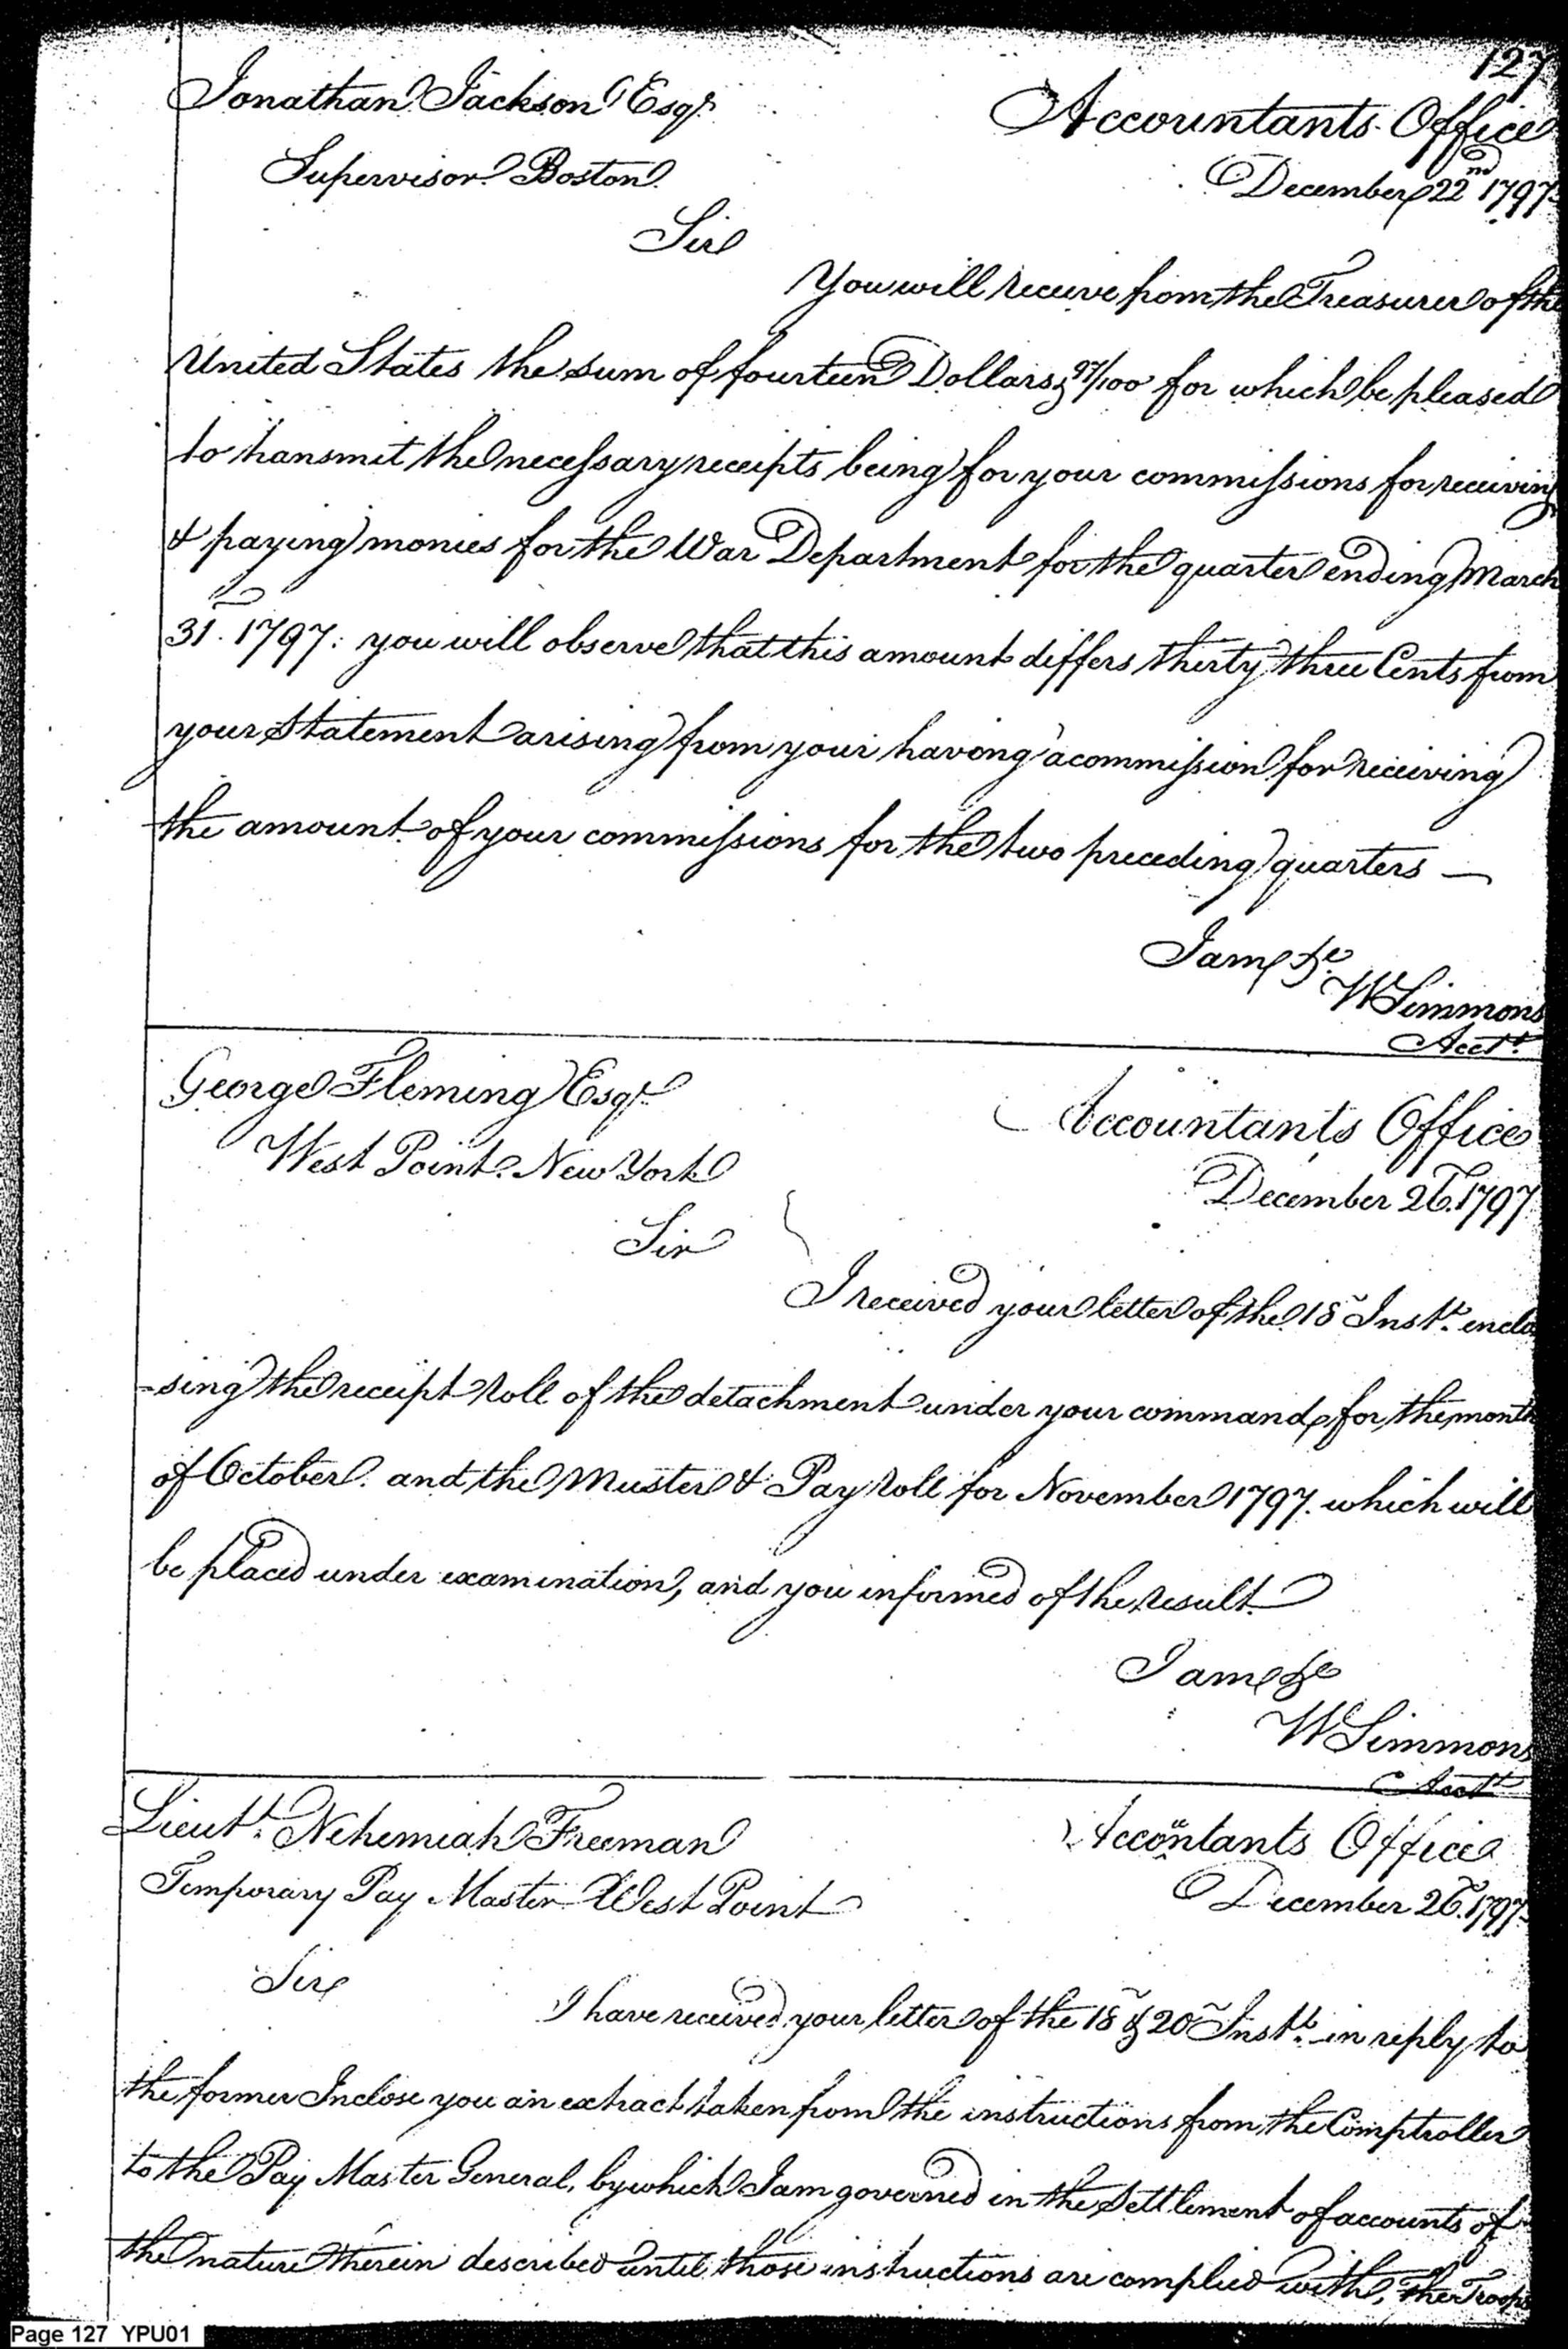 127
Jonathan Jackson Esqr.
Accountants Office
Supervisor Boston
December 22nd 1797
Sir
You will receive from the Treasurer of the
United States the sum of fourteen Dollars & 97/100 for which be pleased
to transmit the necessary receipts being for your commissions for receiving
& paying monies for the War Department for the quarter ending March
31. 1797: you will observe that this amount differs thirty three Cents from
your Statement arising from your having a commission for receiving
the amount of your commissions for the two preceding quarters —
I am &c.
W Simmons
Acct.
George Fleming Esqr.
Accountants Office
West Point. New York
December 26. 1797
Sir
I received your letter of the 18 Inst. enclo
-sing the receipt Roll of the detachment under your command, for the month
of October. and the Muster & Pay Roll for November 1797. which will
be placed under examination, and you informed of the result.
I am &c
W Simmons
Acct
Lieut. Nehemiah Freeman
Accountants Office
Temporary Pay Master West Point
December 26. 1797
Sir
I have received your letter of the 18 & 20 Inst. in reply to
the former Inclose you an extract taken from the instructions from the Comptroller
to the Pay Master General, by which I am governed in the Settlement of accounts of
the nature therein described until those instructions are complied with, The Troops
Page 127 YPU01